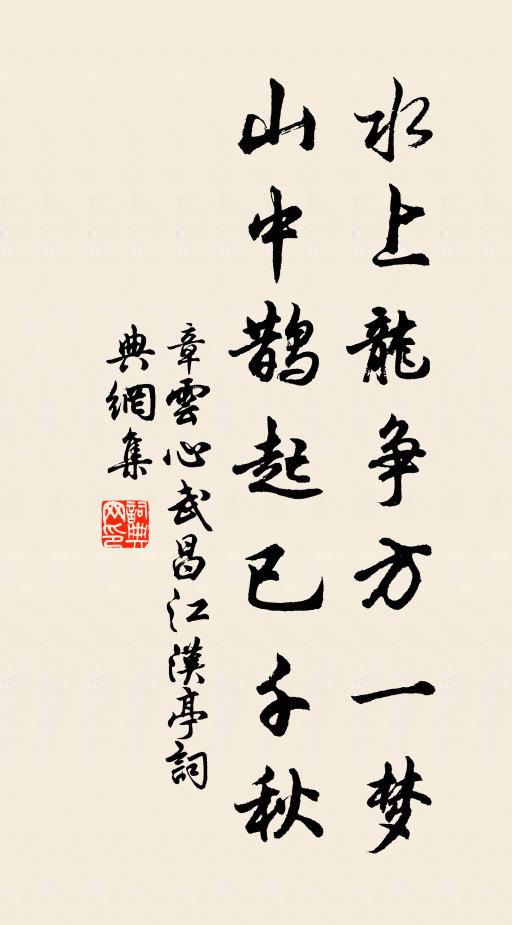 水上龍争方一梦
山中鵲起已千秋
章雲心武昌江漢亭詞
典網集
詞典
网印